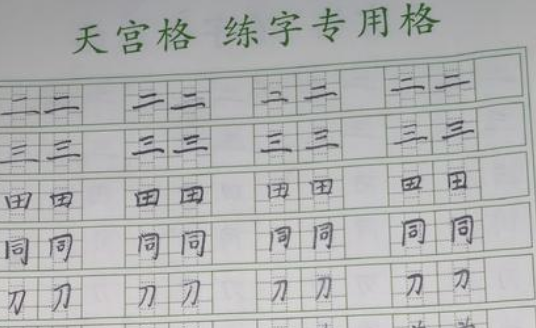 天宫格 练字专用格
二 二 二 二 二 二 二 二
三 三 三 三 三 三 三 三
田 田 田 田 田 田 田 田
同 同 同 同 同 同 同 同
刀 刀 刀 刀 刀 刀 刀 刀